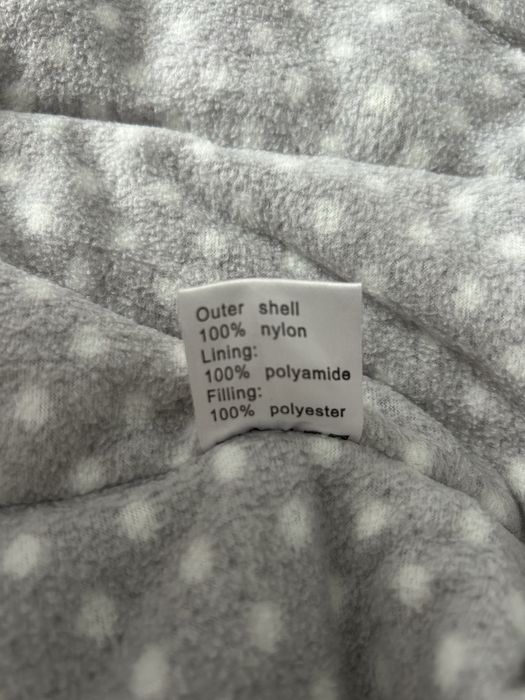 Outer shell
100% nylon
Lining:
100% polyamide
Filling:
100% polyester